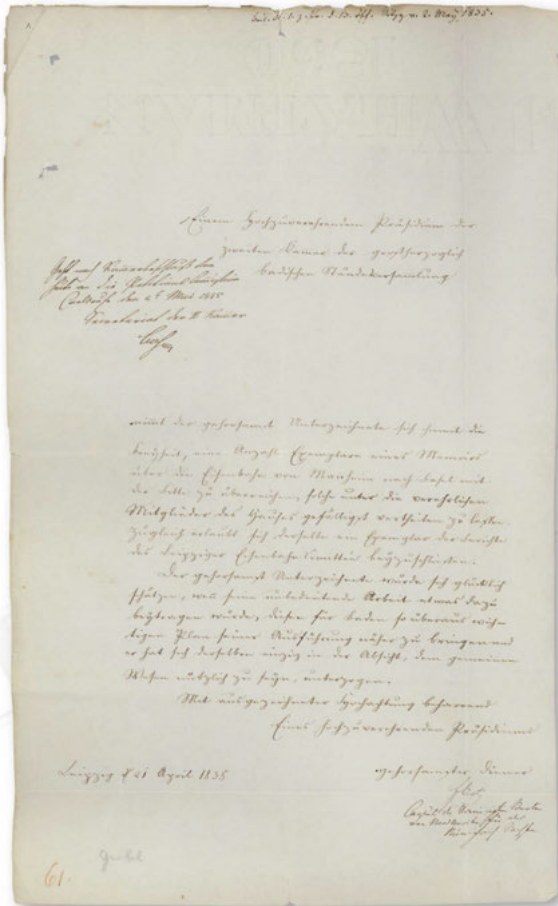 2. May 1835.
Einem Hochzuverehrendem Präsidium der
zweiten Kamer der großherzoglich
badischen Ständeversamlung
Geht nach Kammerbeschluß von
heute an die Petitions Commission
Carlsruhe den 2t Mai 1835
Secretariat der II Kamer
nimt der gehorsamst Unterzeichnete sich hiemit die
Freyheit, eine Anzahl Exemplare eines Memoirs
über die Eisenbahn von Manheim nach Basel mit
der Bitte zu überreichen, solche unter die verehrlichen
Mitglieder des Hauses gefälligst vertheilen zu lassen.
Zugleich erlaubt sich derselbe ein Exemplar der Berichte
des Leipziger Eisenbahn Comittee beyzuschließen.
Der gehorsamst Unterzeichnete würde sich glücklich
schätzen, wenn seine unbedeutende Arbeit etwas dazu
beytragen würde, diesen für Baden so überaus wich-
tigen Plan seiner Ausführung näher zu bringen und
er hat sich derselben einzig in der Absicht, dem gemeinen
Wesen nützlich zu seyn, unterzogen.
Mit ausgezeichneter Hochachtung beharrend
Eines hochzuverehrenden Präsidiums
Leipzig d 21 April 1835
gehorsamster Diener
List
Consul der Vereinigten Staaten
von Nordamerika für das
Königreich Sachsen
61.